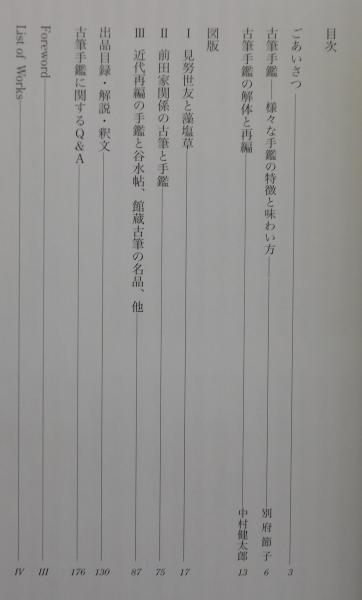 目次
ごあいさつ 3
古筆手鑑―様々な手鑑の特徴と味わい方 別府節子 6
古筆手鑑の解体と再編 中村健太郎 13
図版
Ⅰ 見努世友と藻塩草 17
Ⅱ 前田家関係の古筆と手鑑 75
Ⅲ 近代再編の手鑑と谷水帖、館蔵古筆の名品、他 87
出品目録・解説・釈文 130
古筆手鑑に関するQ&A 176
Foreword III
List of Works IV